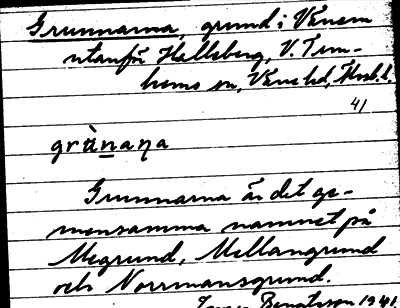 Grunnarna, grund i Vänern
utanför Halleberg, V. Tun-
hems sn, Väne hd, Älvsb. l.
41
grùnaṇa
Grunnarna är det ge-
mensamma namnet på
Megrund, Mellangrund
och Norrmansgrund.
Bengtsson 1941.